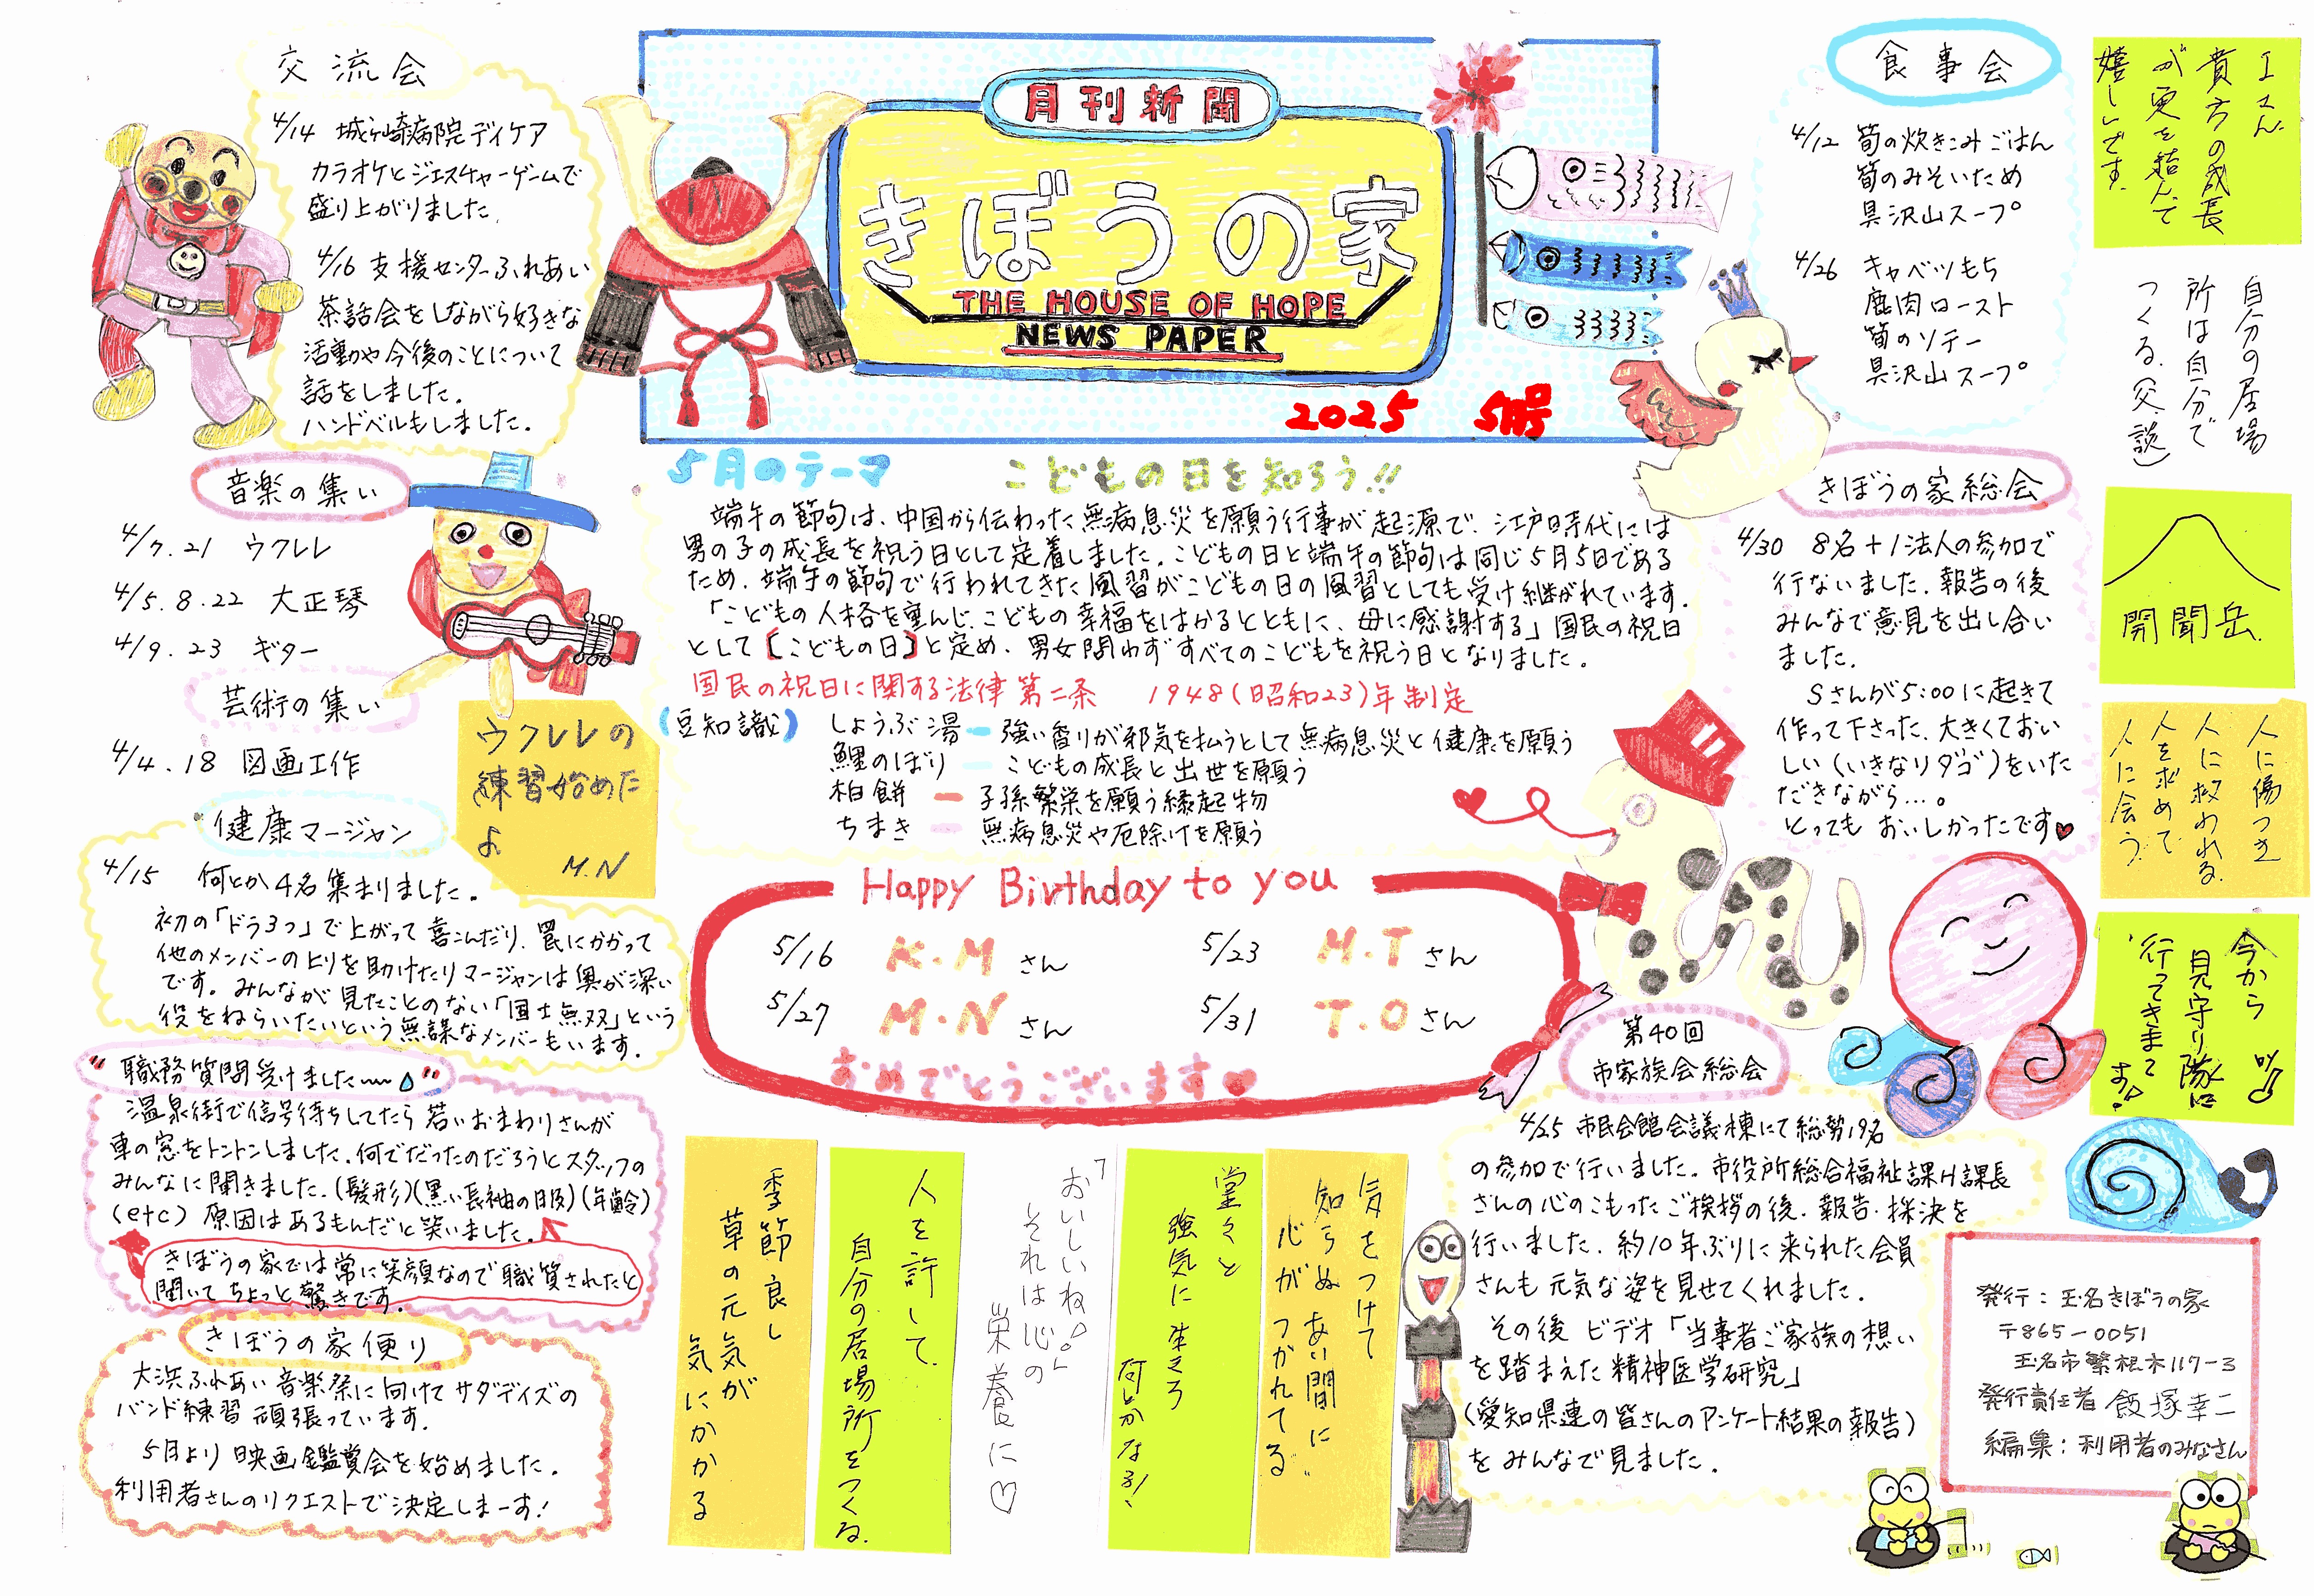 月刊新聞
きぼうの家
THE HOUSE OF HOPE
NEWS PAPER
2025 5月号
交流会
4/14 城ヶ崎病院デイケア
カラオケとジェスチャーゲームで
盛り上がりました。
4/16 支援センターふれあい
茶話会をしながら好きな
活動や今後のことについて
話をしました。
ハンドベルもしました。
音楽の集い
4/7.21 ウクレレ
4/5.8.22 大正琴
4/9.23 ギター
芸術の集い
4/4.18 図画工作
ウクレレの
練習始めた
よ
M.N
健康マージャン
4/15 何とか4名集まりました。
初の「ドラ3つ」で上がって喜こんだり、罠にかかって
他のメンバーの上りを助けたりマージャンは奥が深い
です。みんなが見たことのない「国士無双」という
役をねらいたいという無謀なメンバーもいます。
"職務質問受けました〜"
温泉街で信号待ちしてたら若いおまわりさんが
車の窓をトントンしました。何でだったのだろうとスタッフの
みんなに聞きました。(髪形)(黒い長袖の服)(年齢)
(etc) 原因はあるもんだと笑いました。
きぼうの家では常に笑顔なので職質されたと
聞いてちょっと驚きです。
きぼうの家便り
大浜ふれあい音楽祭に向けてサダデイズの
バンド練習頑張っています。
5月より映画鑑賞会を始めました。
利用者さんのリクエストで決定しまーす!
5月のテーマ こどもの日を知ろう!!
端午の節句は、中国から伝わった無病息災を願う行事が起源で、江戸時代には
男の子の成長を祝う日として定着しました。こどもの日と端午の節句は同じ5月5日である
ため、端午の節句で行われてきた風習がこどもの日の風習としても受け継がれています。
「こどもの人格を重んじ、こどもの幸福をはかるとともに、母に感謝する」国民の祝日
として【こどもの日】と定め、男女問わずすべてのこどもを祝う日となりました。
国民の祝日に関する法律第二条 1948(昭和23)年制定
(豆知識) しょうぶ湯ー強い香りが邪気を払うとして無病息災と健康を願う
鯉のぼりーこどもの成長と出世を願う
柏餅ー子孫繁栄を願う縁起物
ちまきー無病息災や厄除けを願う
Happy Birthday to you
5/16 K.M さん 5/23 M.T さん
5/27 M.N さん 5/31 T.O さん
おめでとうございます♥
気をつけて
知らぬあい間に
心がつかれてる
堂々と
強気に生きろ
何とかなる!
「おいしいね。」
それは心の
栄養に♡
人を許して、
自分の居場所をつくる。
季節良し
草の元気が
気にかかる
食事会
4/12 筍の炊きこみごはん
筍のみそいため
具沢山スープ
4/26 キャベツもち
鹿肉ロースト
筍のソテー
具沢山スープ
きぼうの家総会
4/30 8名+1法人の参加で
行ないました。報告の後
みんなで意見を出し合い
ました。
Sさんが5:00に起きて
作って下さった、大きくておい
しい(いきなりダゴ)をいた
だきながら…。
とってもおいしかったです♥
第40回
市家族会総会
4/25 市民会館会議棟にて総勢19名
の参加で行いました。市役所総合福祉課H課長
さんの心のこもったご挨拶の後、報告・採決を
行いました。約10年ぶりに来られた会員
さんも元気な姿を見せてくれました。
その後ビデオ「当事者ご家族の想い
を踏まえた精神医学研究」
(愛知県連の皆さんのアンケート結果の報告)
をみんなで見ました。
Iさん
貴方の成長
が実を結んで
嬉しいです。
自分の居場
所は自分で
つくる。(父・談)
開聞岳
人に傷つき
人に救われる。
人を求めて
人に会う。
今から
見守り隊に
行ってきまーす!
発行:玉名きぼうの家
〒865-0051
玉名市繁根木117-3
発行責任者 飯塚幸二
編集:利用者のみなさん